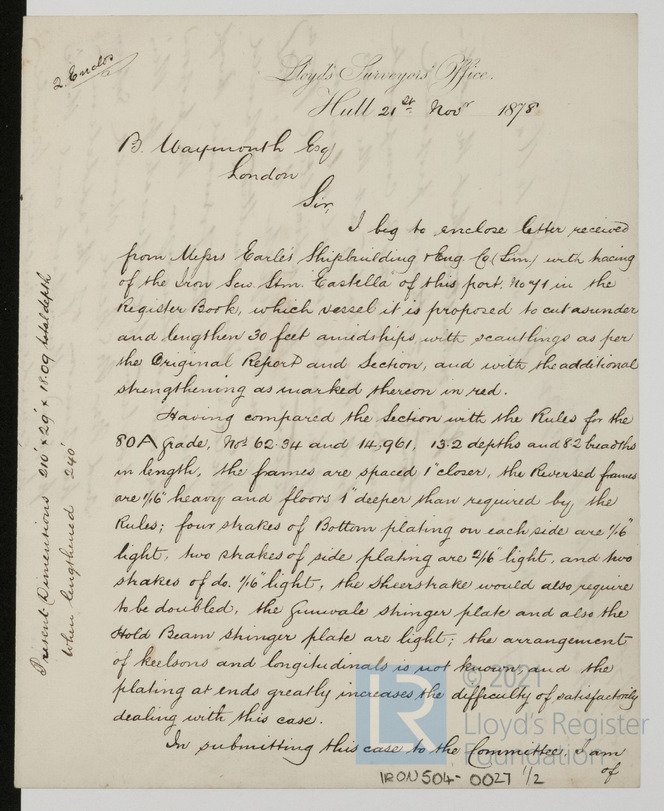 2. Enclos
Lloyd's Surveyors' Office.
Hull 21st Novr 1878
B. Waymouth Esq
London
Sir,
I beg to enclose letter received
from Messrs Earle's Shipbuilding & Eng. Co (Lim.) with tracing
of the Iron Scw. Stm. Castella of this port, No 71 in the
Register Book, which vessel it is proposed to cut asunder
and lengthen 30 feet amidships, with scantlings as per
the Original Report and Section, and with the additional
strengthening as marked thereon in red.
Having compared the Section with the Rules for the
80A grade, Nos 62.34 and 14,961, 13.2 depths and 8.2 breadths
in length, the frames are spaced 1" closer, the Reversed frames
are 1/16" heavy and floors 1" deeper than required by the
Rules; four strakes of Bottom plating on each side are 1/16"
light, two strakes of side plating are 2/16" light, and two
strakes of do. 1/16" light, the Sheerstrake would also require
to be doubled, the Gunwale stringer plate and also the
Hold Beam stringer plate are light; the arrangement
of keelsons and longitudinals is not known, and the
plating at ends greatly increases the difficulty of satisfactorily
dealing with this case.
In submitting this case to the Committee, I am
of
Present Dimensions 210' x 29' x 18.09 total depth
When lengthened 240'
© 2021
LR
Lloyd's Register
Foundation
IRON504-0027 1/2